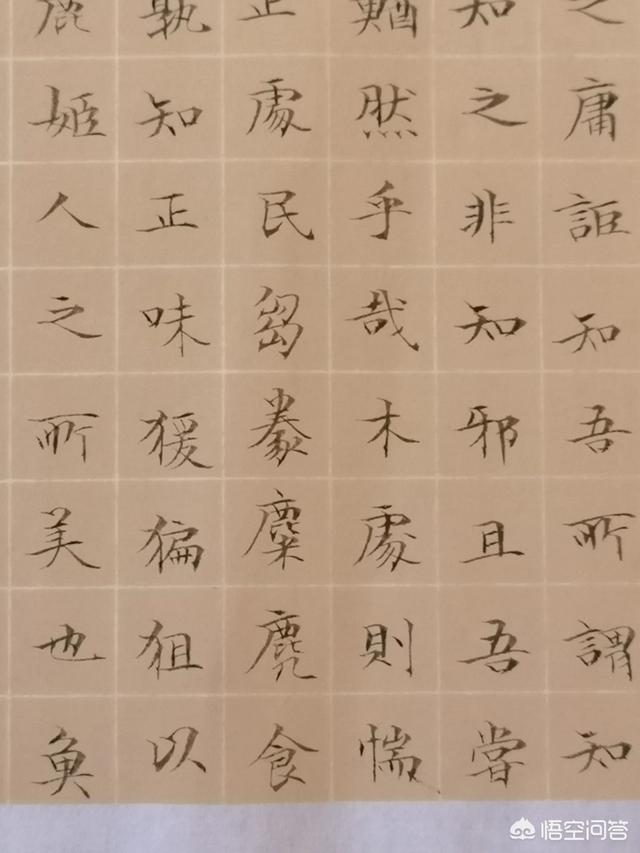 之庸詎知吾所謂知
知之非知邪且吾嘗
鰌然乎哉木處則惴
正處民芻豢麋鹿食
孰知正味猨猵狙以
麗姬人之所美也魚
悟空问答